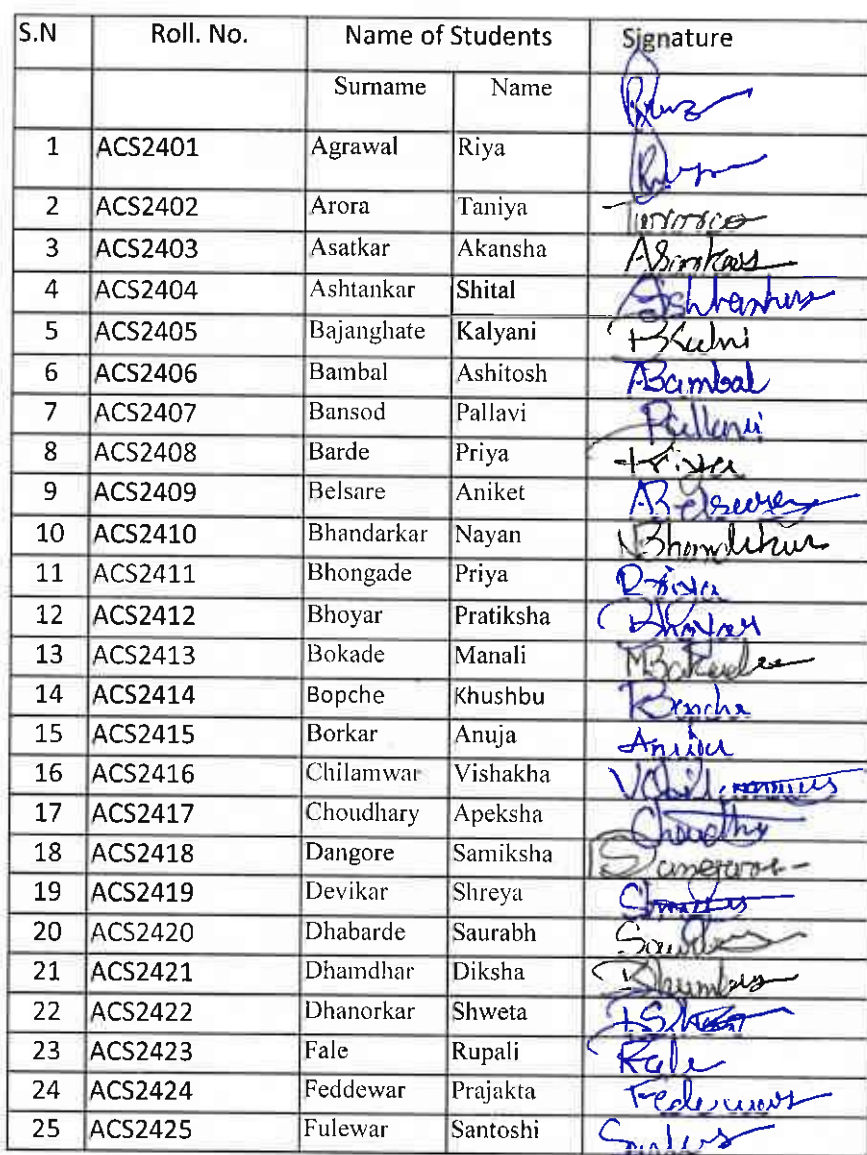 S.N Roll. No. Name of Students Signature
Surname Name
1 ACS2401 Agrawal Riya
2 ACS2402 Arora Taniya
3 ACS2403 Asatkar Akansha
4 ACS2404 Ashtankar Shital
5 ACS2405 Bajanghate Kalyani
6 ACS2406 Bambal Ashitosh ABambal
7 ACS2407 Bansod Pallavi Pallavi
8 ACS2408 Barde Priya
9 ACS2409 Belsare Aniket
10 ACS2410 Bhandarkar Nayan
11 ACS2411 Bhongade Priya
12 ACS2412 Bhoyar Pratiksha
13 ACS2413 Bokade Manali
14 ACS2414 Bopche Khushbu
15 ACS2415 Borkar Anuja
16 ACS2416 Chilamwar Vishakha
17 ACS2417 Choudhary Apeksha
18 ACS2418 Dangore Samiksha
19 ACS2419 Devikar Shreya
20 ACS2420 Dhabarde Saurabh
21 ACS2421 Dhamdhar Diksha
22 ACS2422 Dhanorkar Shweta
23 ACS2423 Fale Rupali
24 ACS2424 Feddewar Prajakta
25 ACS2425 Fulewar Santoshi